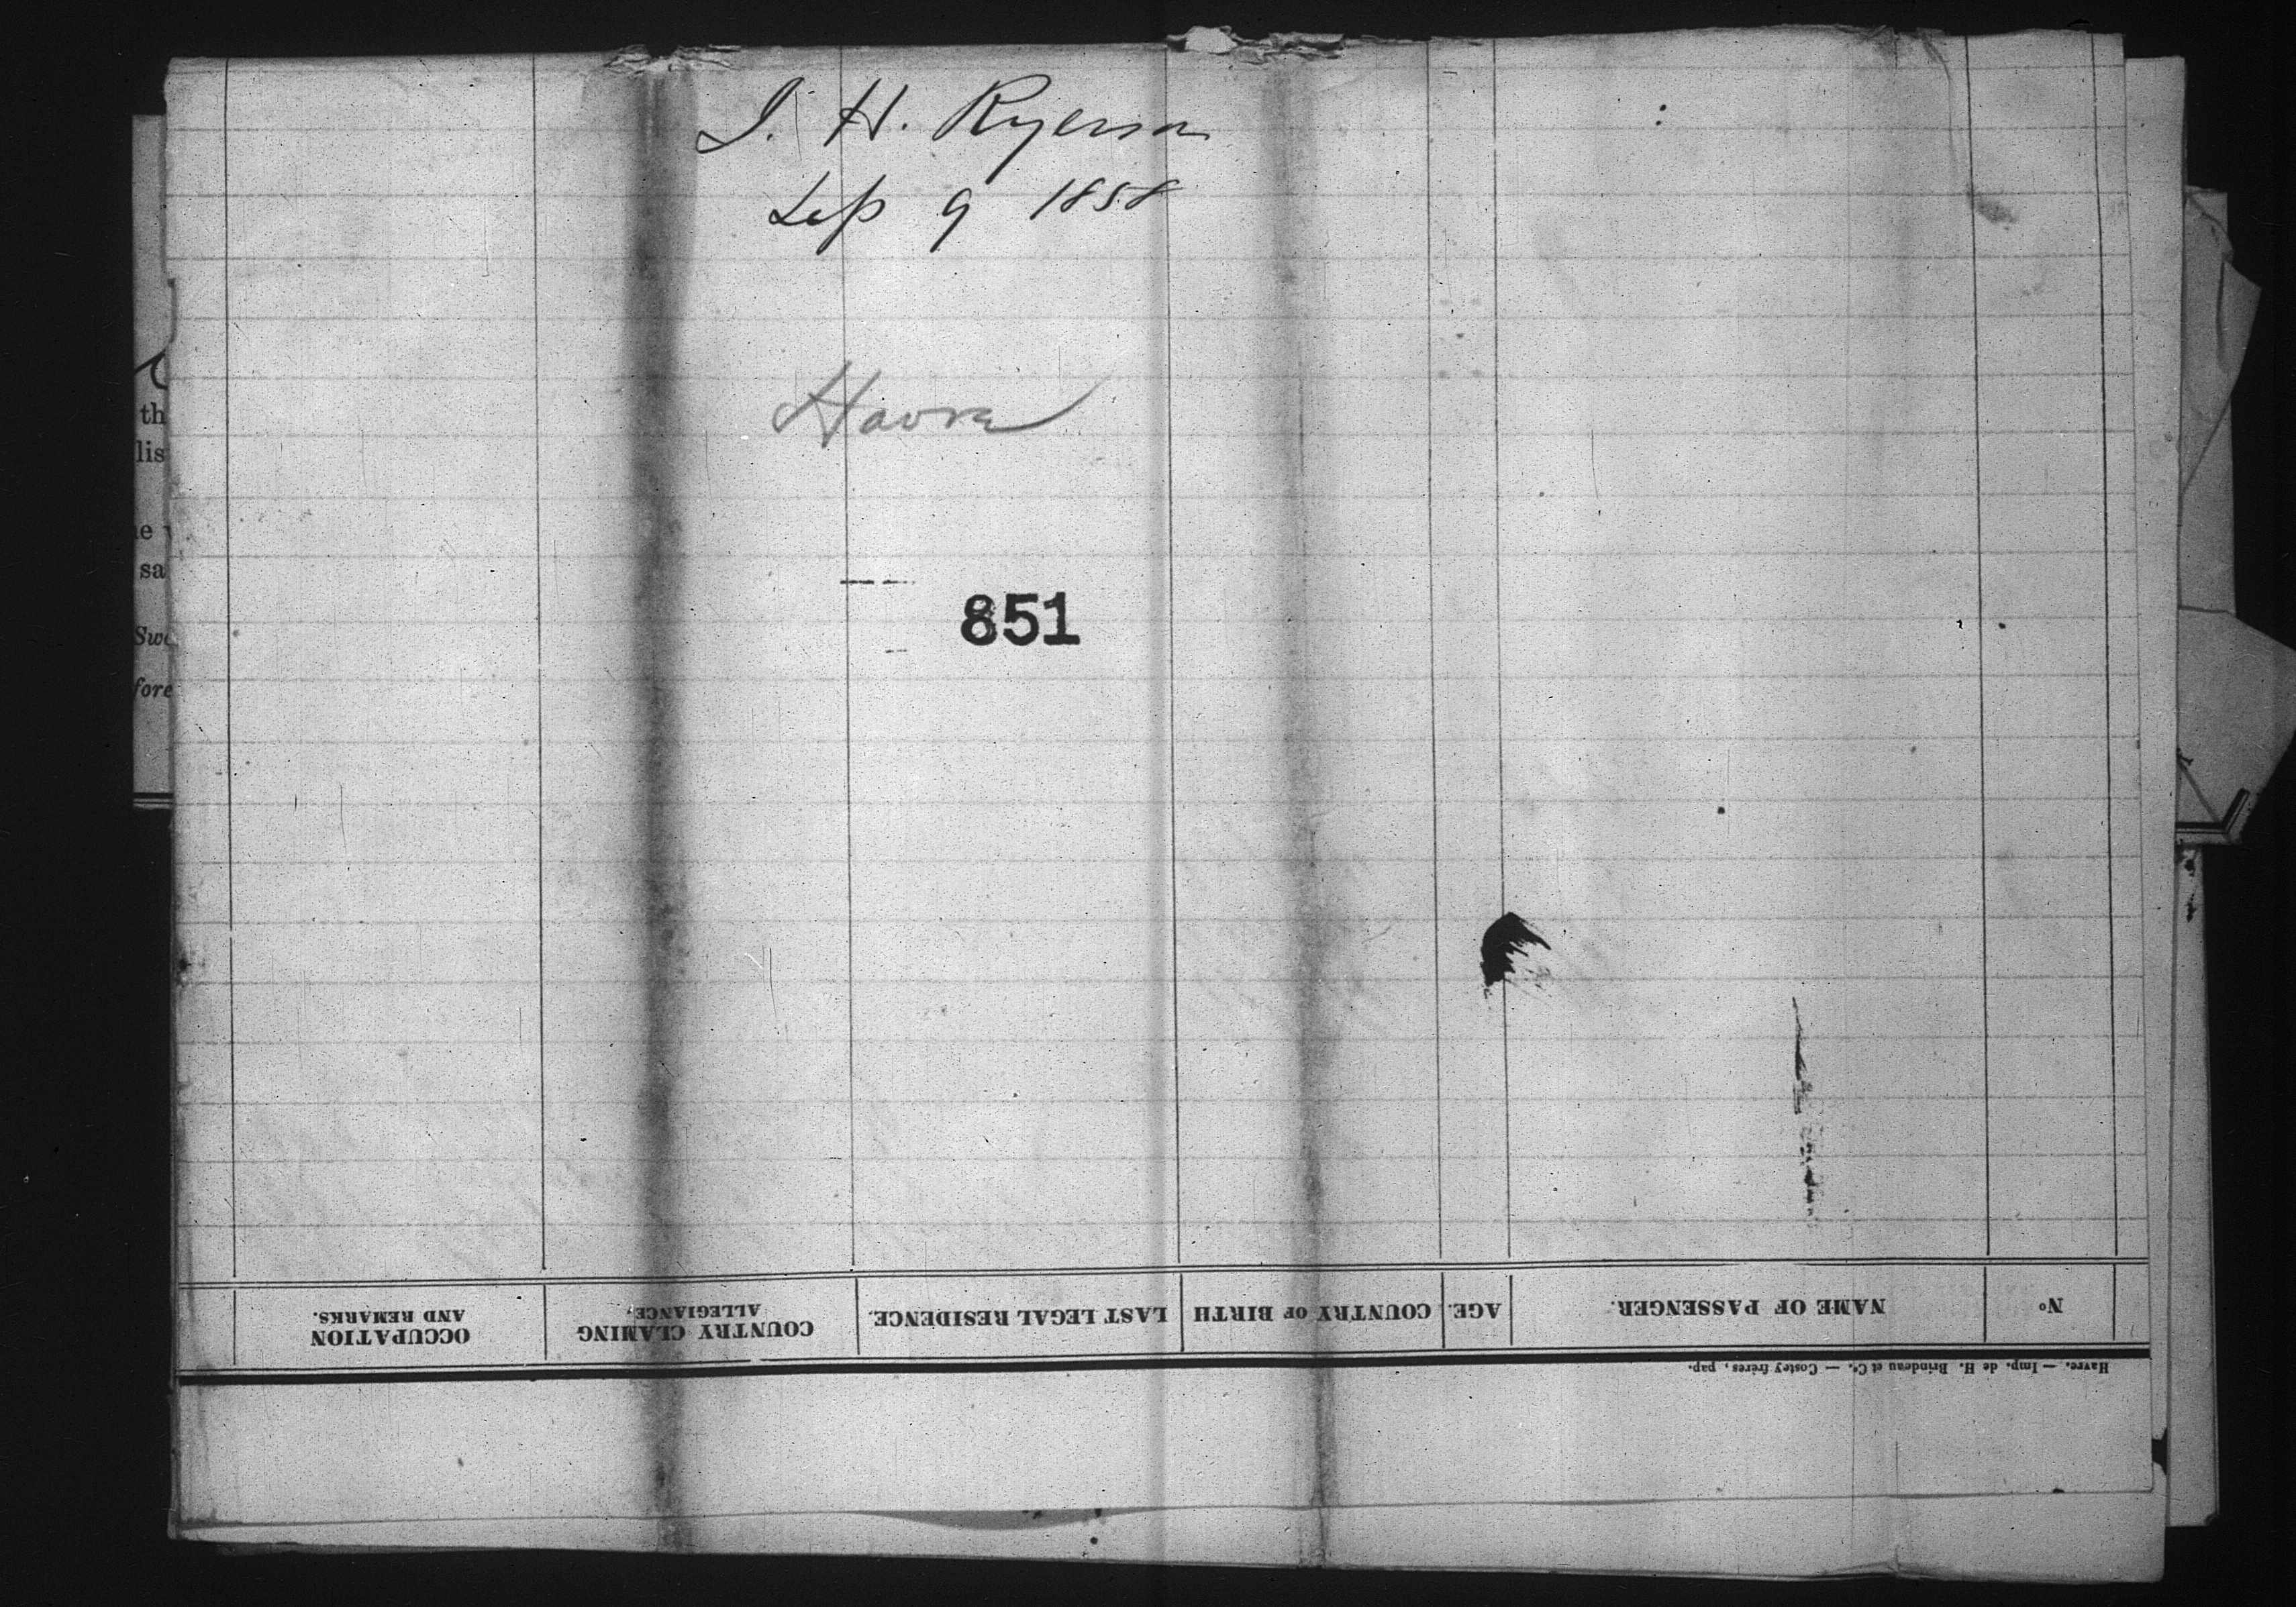 J. H. Ryerson
Sep 9 1858
Havre
851
th
lis
sa
fore
Havre. — Imp. de H. Brindeau et Cᵉ. — Costey frères, pap.
Nº
NAME OF PASSENGER.
AGE.
COUNTRY OF BIRTH
LAST LEGAL RESIDENCE.
COUNTRY CLAMING
ALLEGIANCE,
OCCUPATION
AND REMARKS.